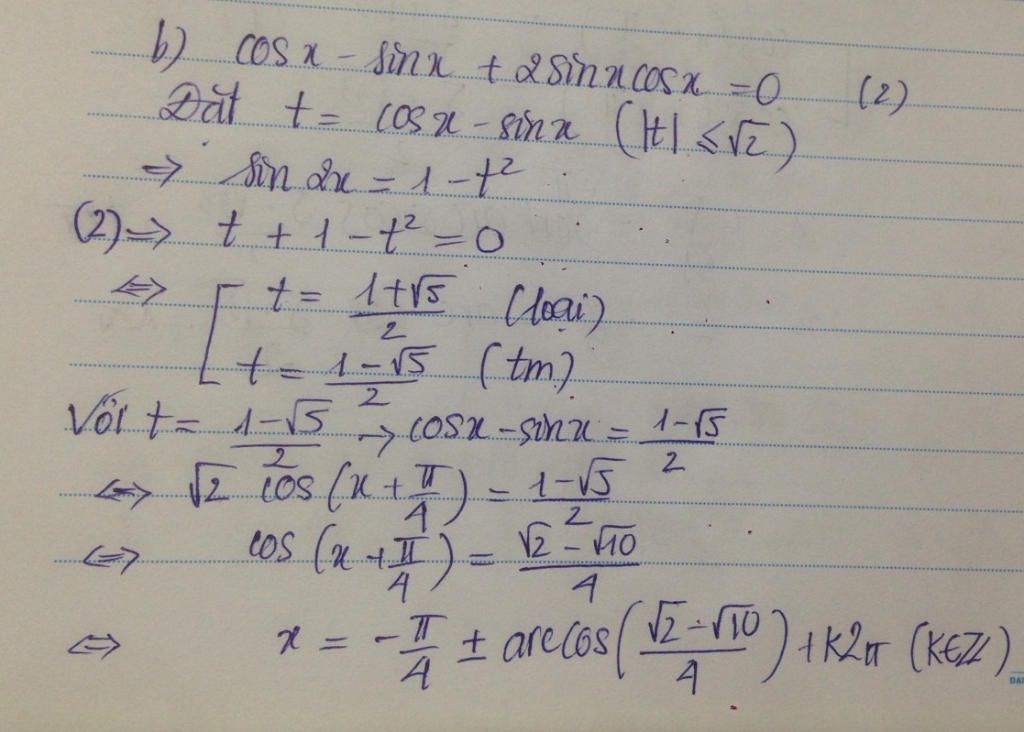 b) cosx - sinx + 2sinxcosx = 0 (2)
Đặt t = cosx - sinx (|t| ≤ √2)
⇒ sin 2x = 1 - t²
(2) ⇒ t + 1 - t² = 0
⇔ [ t = (1+√5)/2 (loại)
t = (1-√5)/2 (tm)
Với t = (1-√5)/2 → cosx - sinx = (1-√5)/2
⇔ √2 cos(x + π/4) = (1-√5)/2
⇔ cos(x + π/4) = (√2 - √10)/4
⇔ x = -π/4 ± arccos((√2 - √10)/4) + k2π (k∈Z)